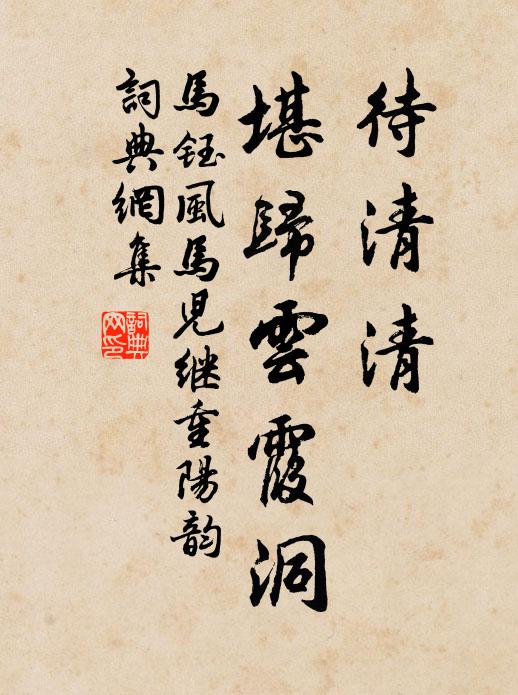 待清清
堪歸雲霞洞
馬鈺風馬兒继重陽韵
詞典網集
詞典網印